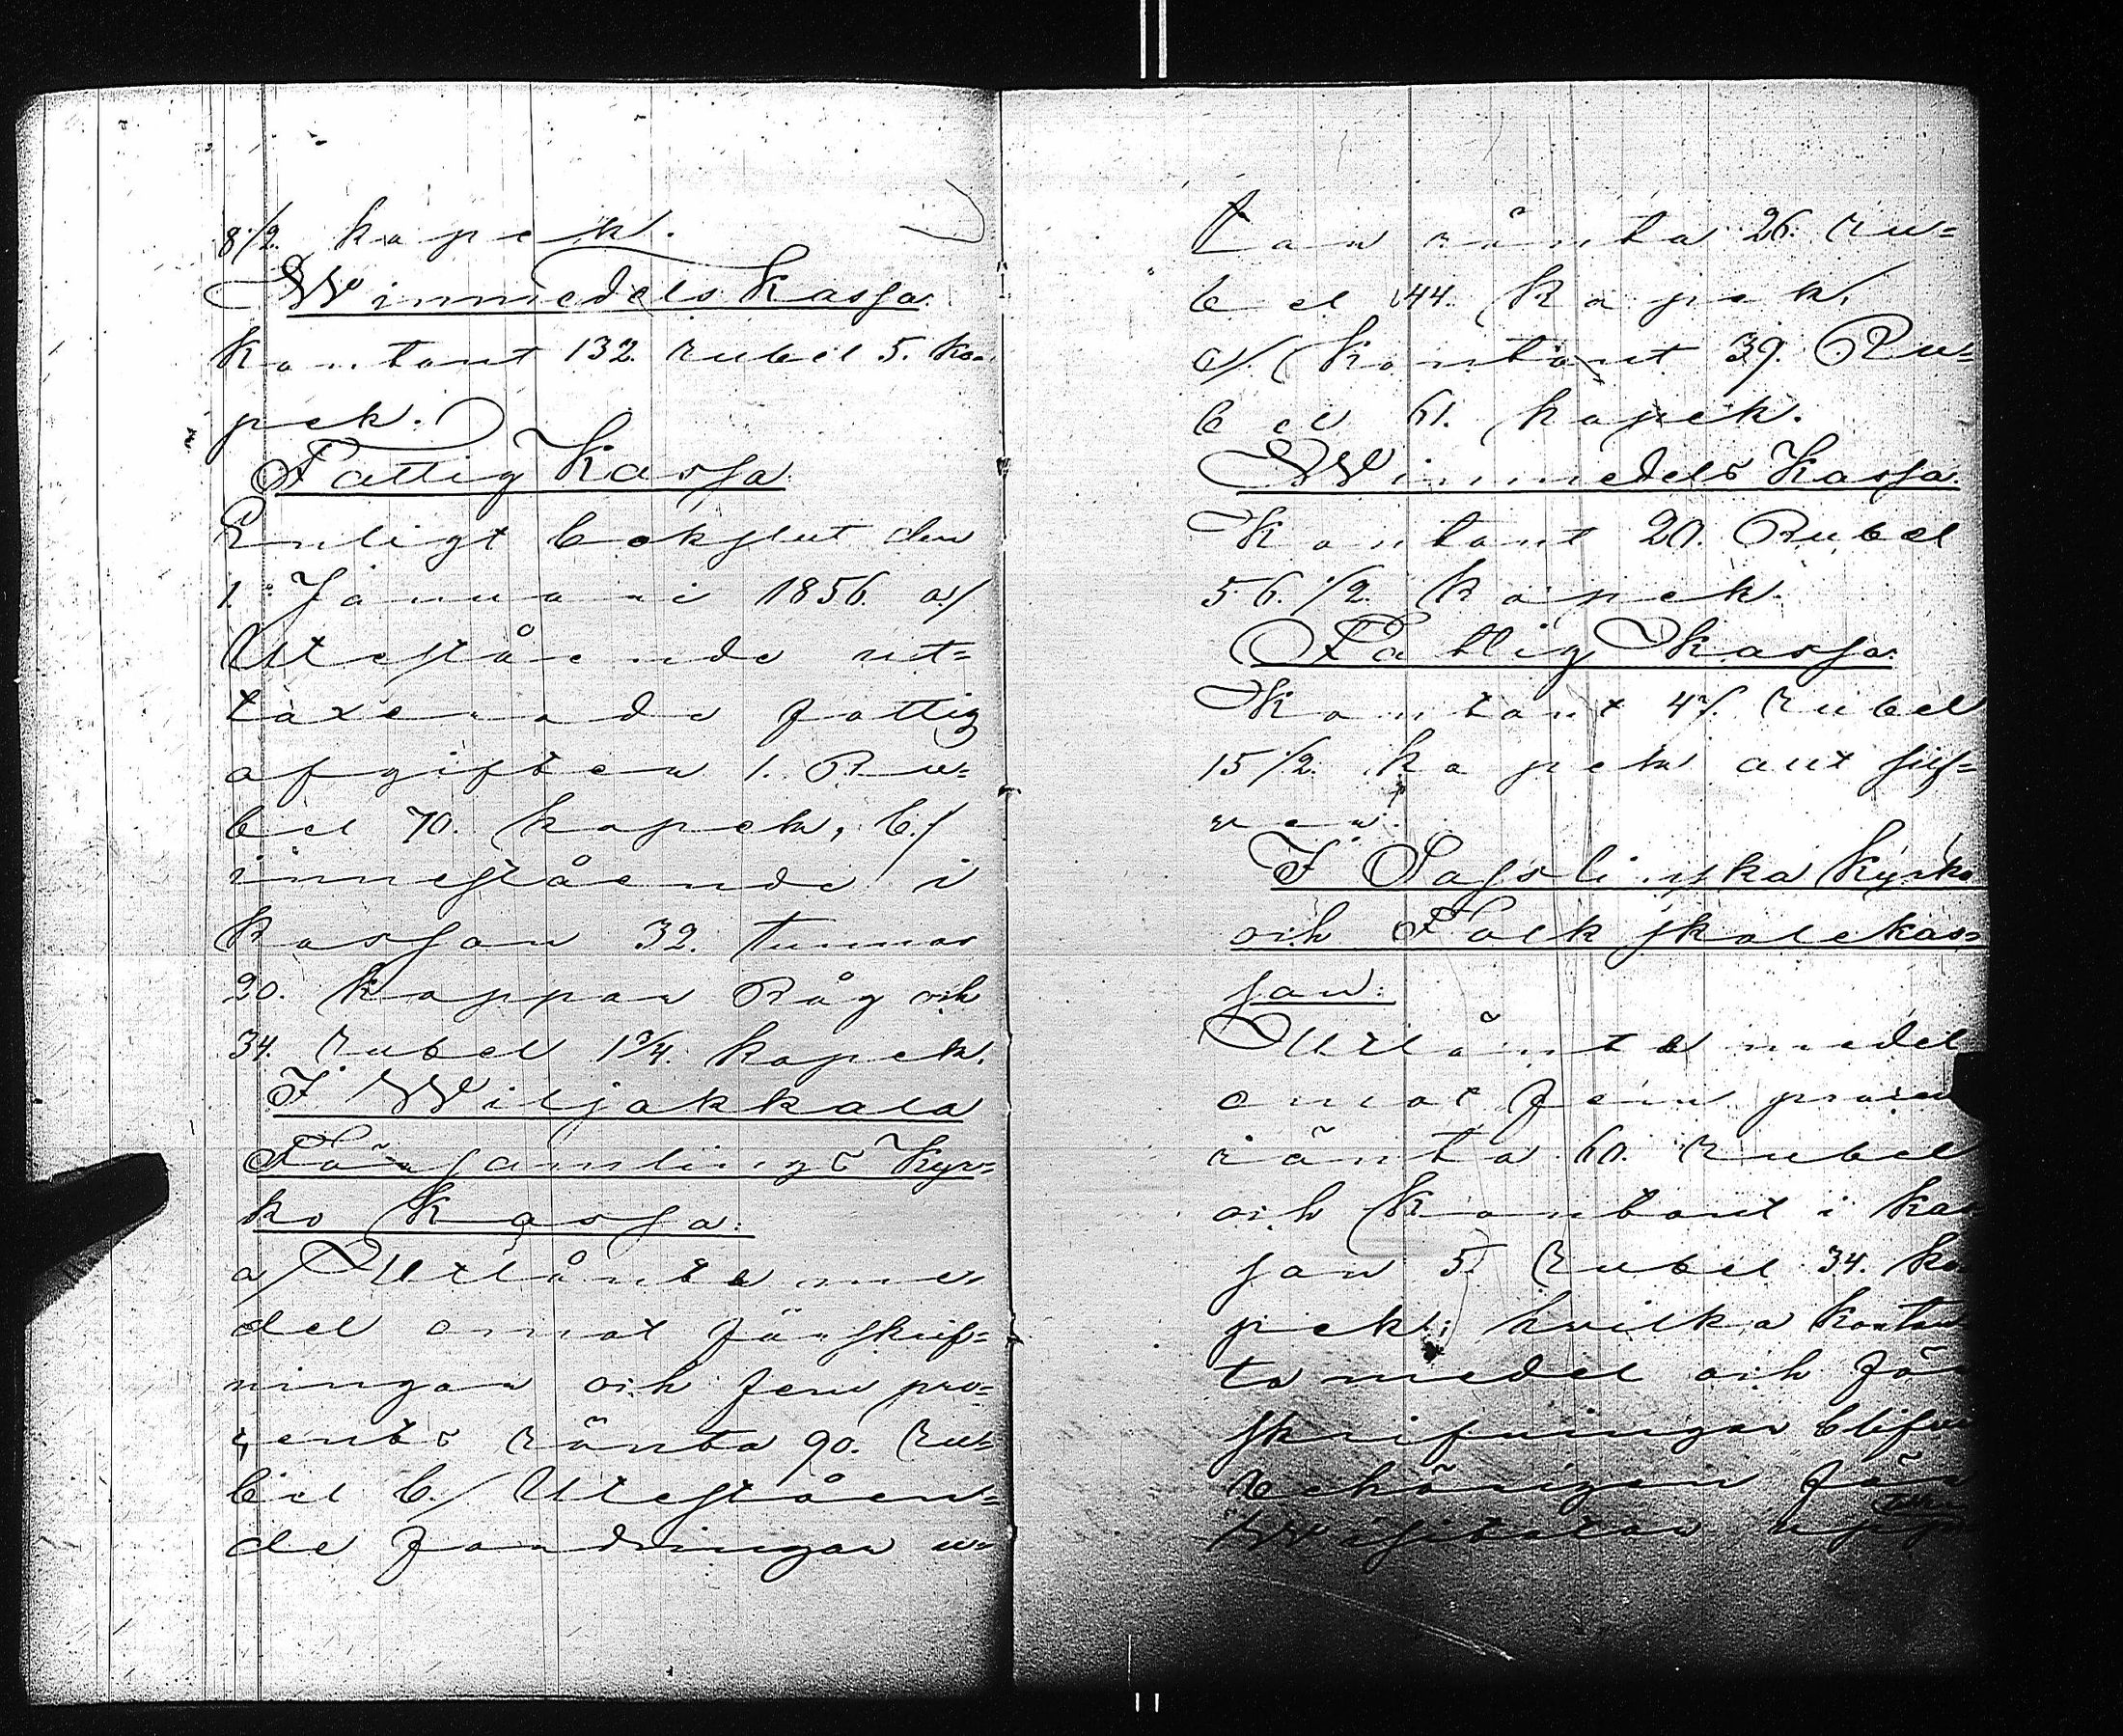 8 1/2. kopek.
Winmedels Kassa.
Kontant 132. rubel 5. ko-
pek.
Fattig Kassa
Enligt bokslut den
1. Januari 1856. a/
Utestående ut=
taxerade fattig
afgifter 1. Ru=
bel 70. kopek, b./
innestående i
Kassan 32. tunnor
20. kappar Råg och
34. rubel 1 3/4. kopek.
I Wiljakkala
Församlings Kyr=
ko Kassa:
a/ Utlånte me-
del emot förskrif=
ningar och fem pro=
cents ränta 90. ru=
bel b./ Uteståen=
de fordringar u=
tan ränta 26. ru=
bel 44. kopek,
c/. Kontant 39. Ru=
bel 61. kopek.
Winmedels Kassa.
Kontant 20. Rubel
56. 1/2. kopek.
Fattig Kassa:
Kontant 47. rubel
15 1/2. kopek allt silf=
ver.
I Kyrko
och Folkskolekas=
san:
Utlånte medel
emot fem
ränta 60. rubel
och Kontant i kas
san 5. rubel 34. ko
pek; hvilka kontan
ta medel och för
skrifningar blifvit
behörigen för
Visitator